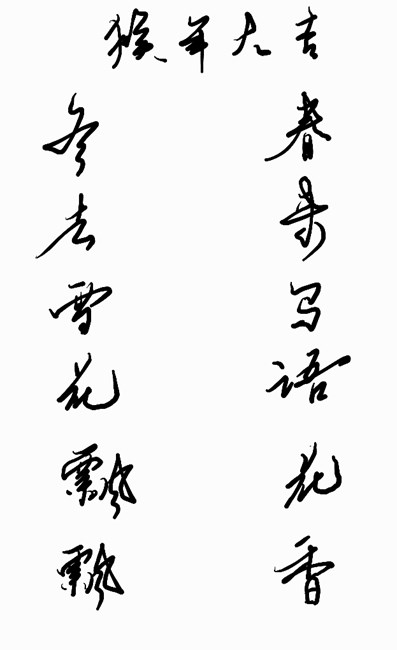 猴年大吉
冬去雪花飘飘
春来鸟语花香